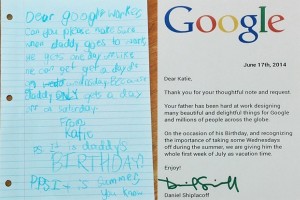 Dear google worker,
Can you please make sure
when daddy goes to work
he gets one day off
he can get a day off
on wednesday. Because
daddy ONLY gets a day
off on saturday.
From
Katie
P.S. It is daddy's
BIRTHDAY!
P.P.S. It is summer,
you know
Google
June 17th, 2014
Dear Katie,
Thank you for your thoughtful note and request.
Your father has been hard at work designing
many beautiful and delightful things for Google
and millions of people across the globe.
On the occasion of his Birthday, and recognizing
the importance of taking some Wednesdays
off during the summer, we are giving him the
whole first week of July as vacation time.
Enjoy!
Daniel Shiplacoff